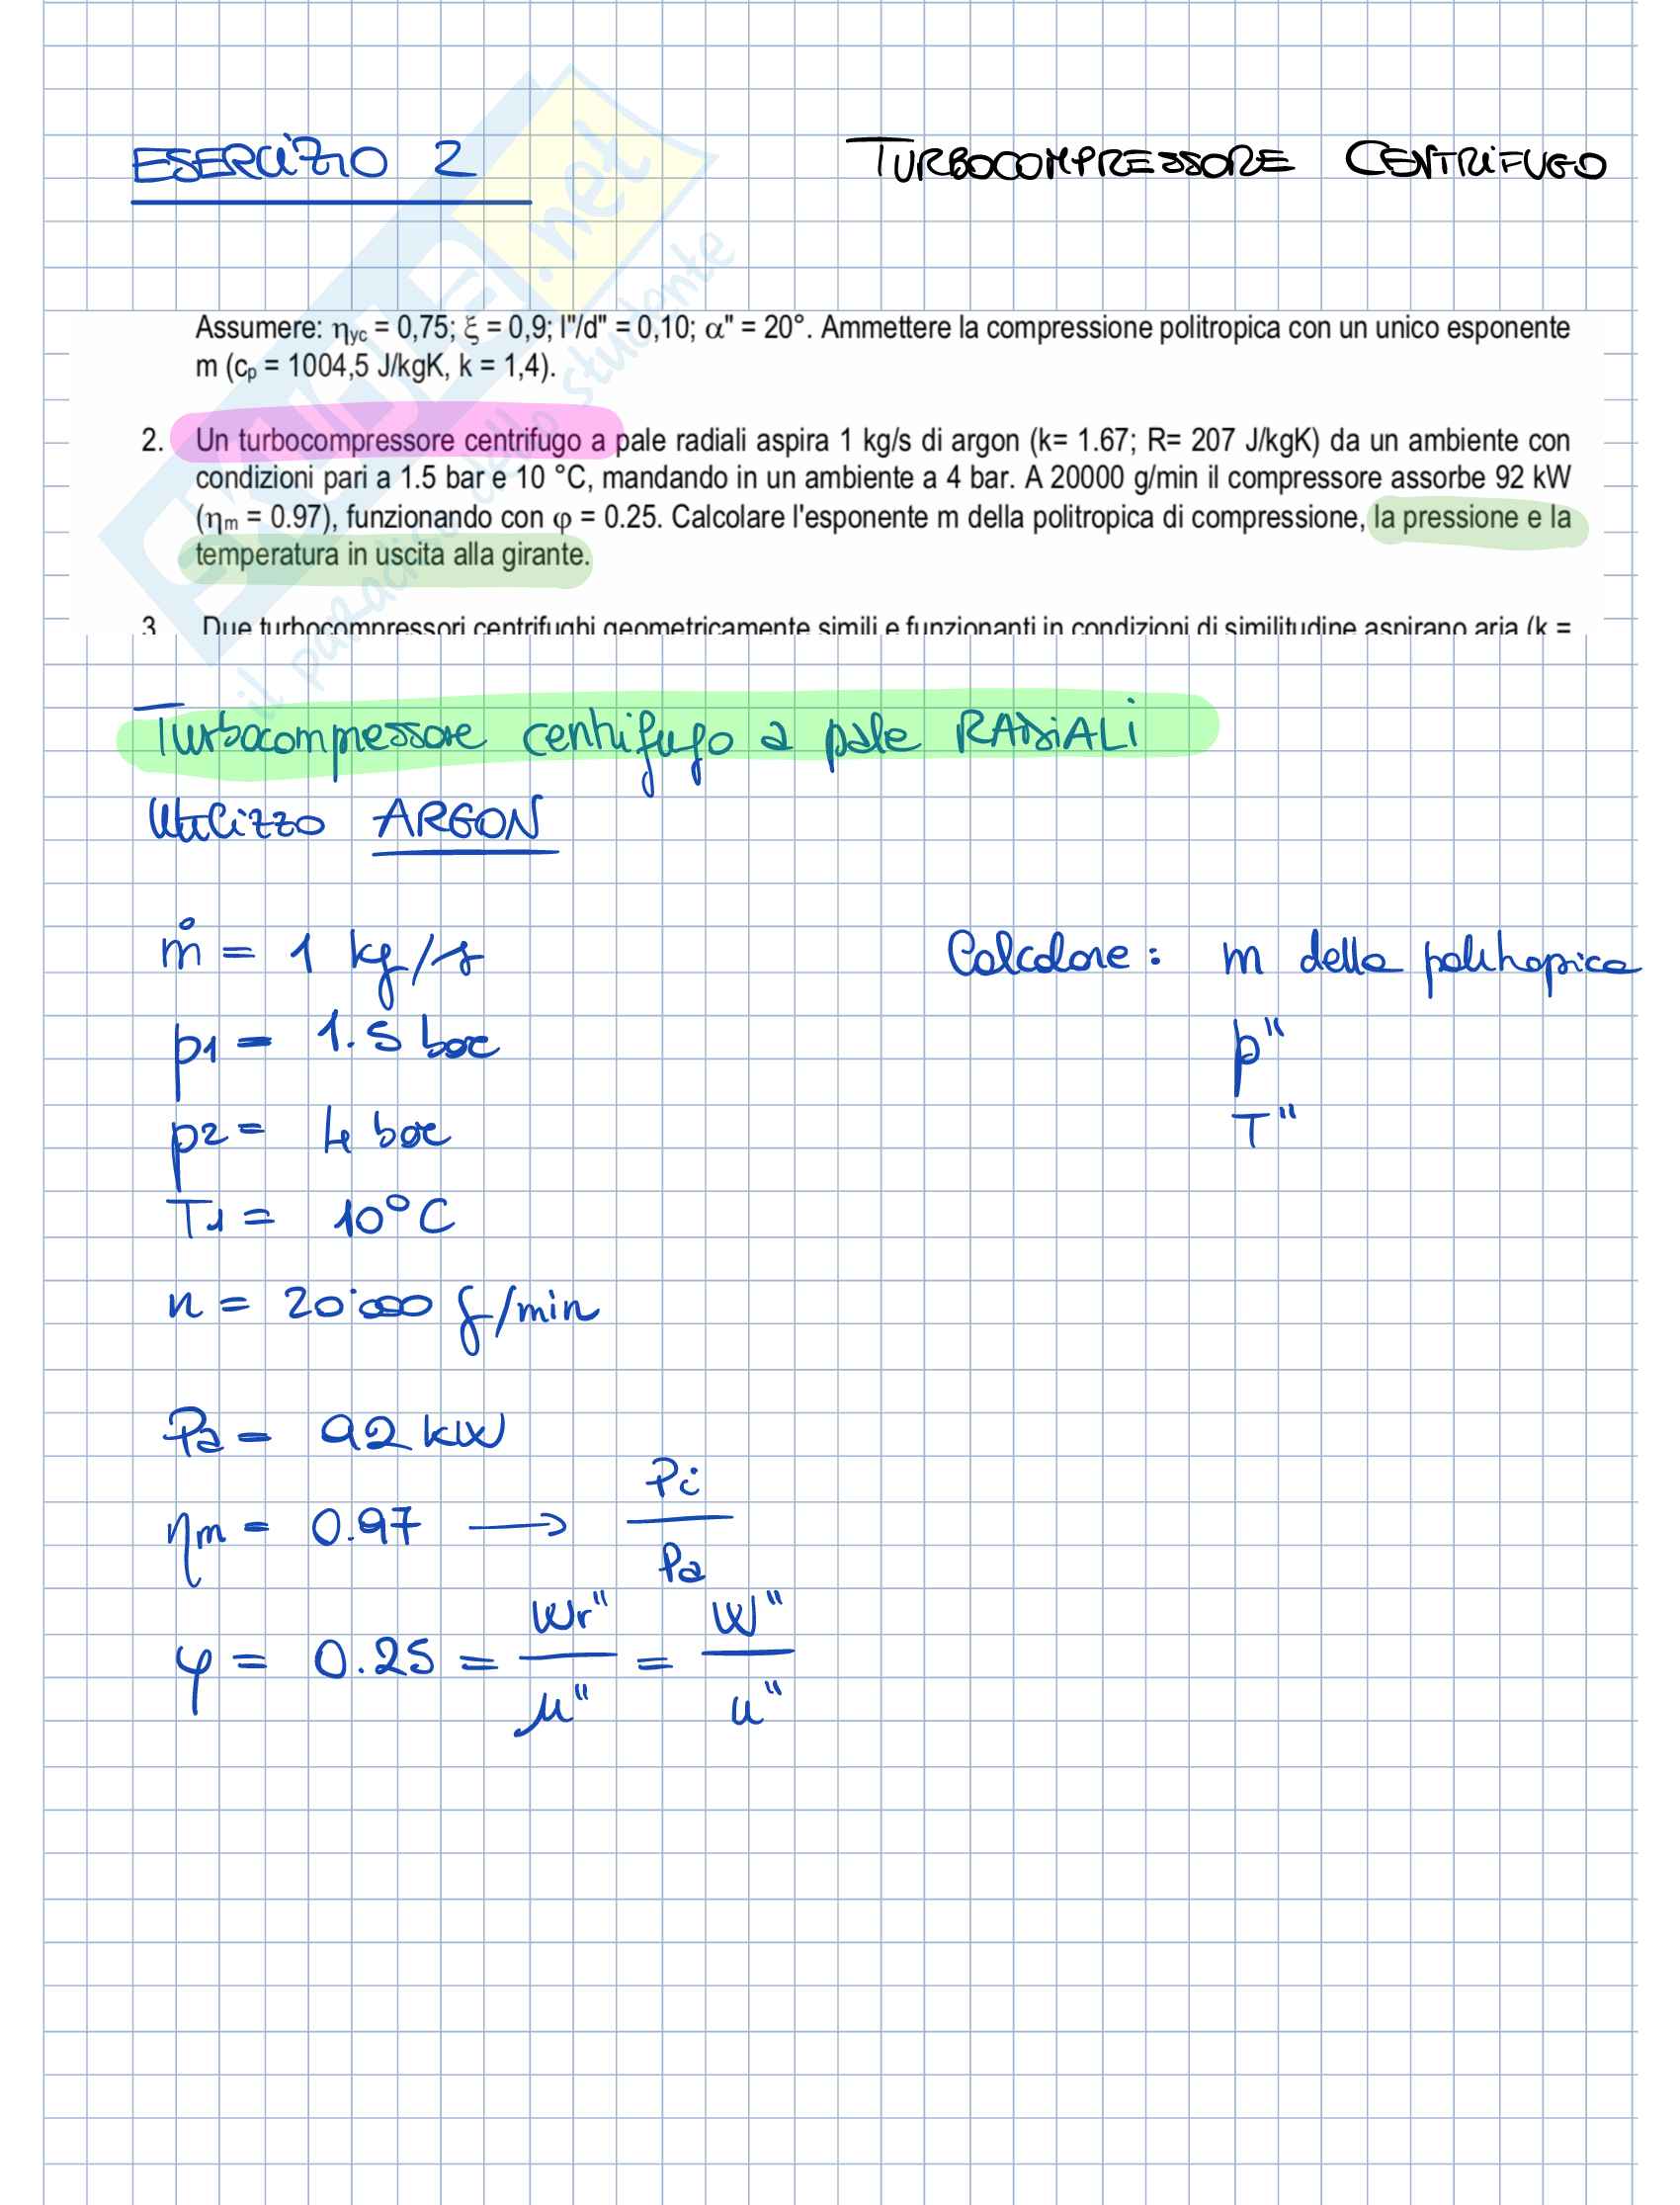 ESERCIZIO 2
TURBOCOMPRESSORE CENTRIFUGO
SKUOLA.net
il paradiso dello studente
Assumere: ηyc = 0,75; ξ = 0,9; l"/d" = 0,10; α" = 20°. Ammettere la compressione politropica con un unico esponente
m (cp = 1004,5 J/kgK, k = 1,4).
2. Un turbocompressore centrifugo a pale radiali aspira 1 kg/s di argon (k= 1.67; R= 207 J/kgK) da un ambiente con
condizioni pari a 1.5 bar e 10 °C, mandando in un ambiente a 4 bar. A 20000 g/min il compressore assorbe 92 kW
(ηm = 0.97), funzionando con φ = 0.25. Calcolare l'esponente m della politropica di compressione, la pressione e la
temperatura in uscita alla girante.
3 Due turbocompressori centrifughi geometricamente simili e funzionanti in condizioni di similitudine aspirano aria (k =
Turbocompressore centrifugo a pale RADIALI
Utilizzo ARGON
ṁ = 1 kg/s
Calcolare: m della politropica
p1 = 1.5 bar
p"
p2 = 4 bar
T"
T1 = 10°C
n = 20'000 g/min
Pa = 92 kW
ηm = 0.97 → Pi / Pa
φ = 0.25 = Wr" / u" = W" / u"